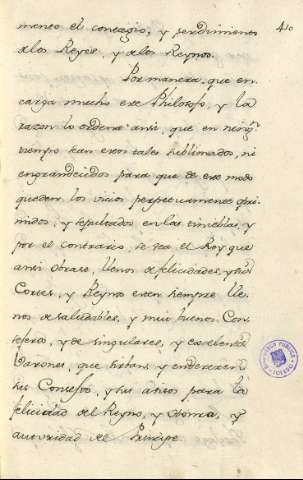 mento el contagio, y perdimiento
de los Reyes, y de los Reynos.
Por manera, que en
carga mucho ese Philosofo, y la
razon lo ordena ansi, que en ningn
tiempo sean esos tales sublimados, ni
engrandecidos para que de ese modo
queden los vicios perpetuamente
midos, y sepultados en las tinieblas, y
por el contrario se vea el Rey que
ansi obrare, lleno de felicidades, y sus
Cortes, y Reynos esten siempre lle
nos de saludables, y mui buenos Con
sejeros, y de singulares, y excelentes
Varones, que sirban, y enderecen
sus Consejos, y sus animos para la
felicidad del Reyno, y
autoridad del Principe
40